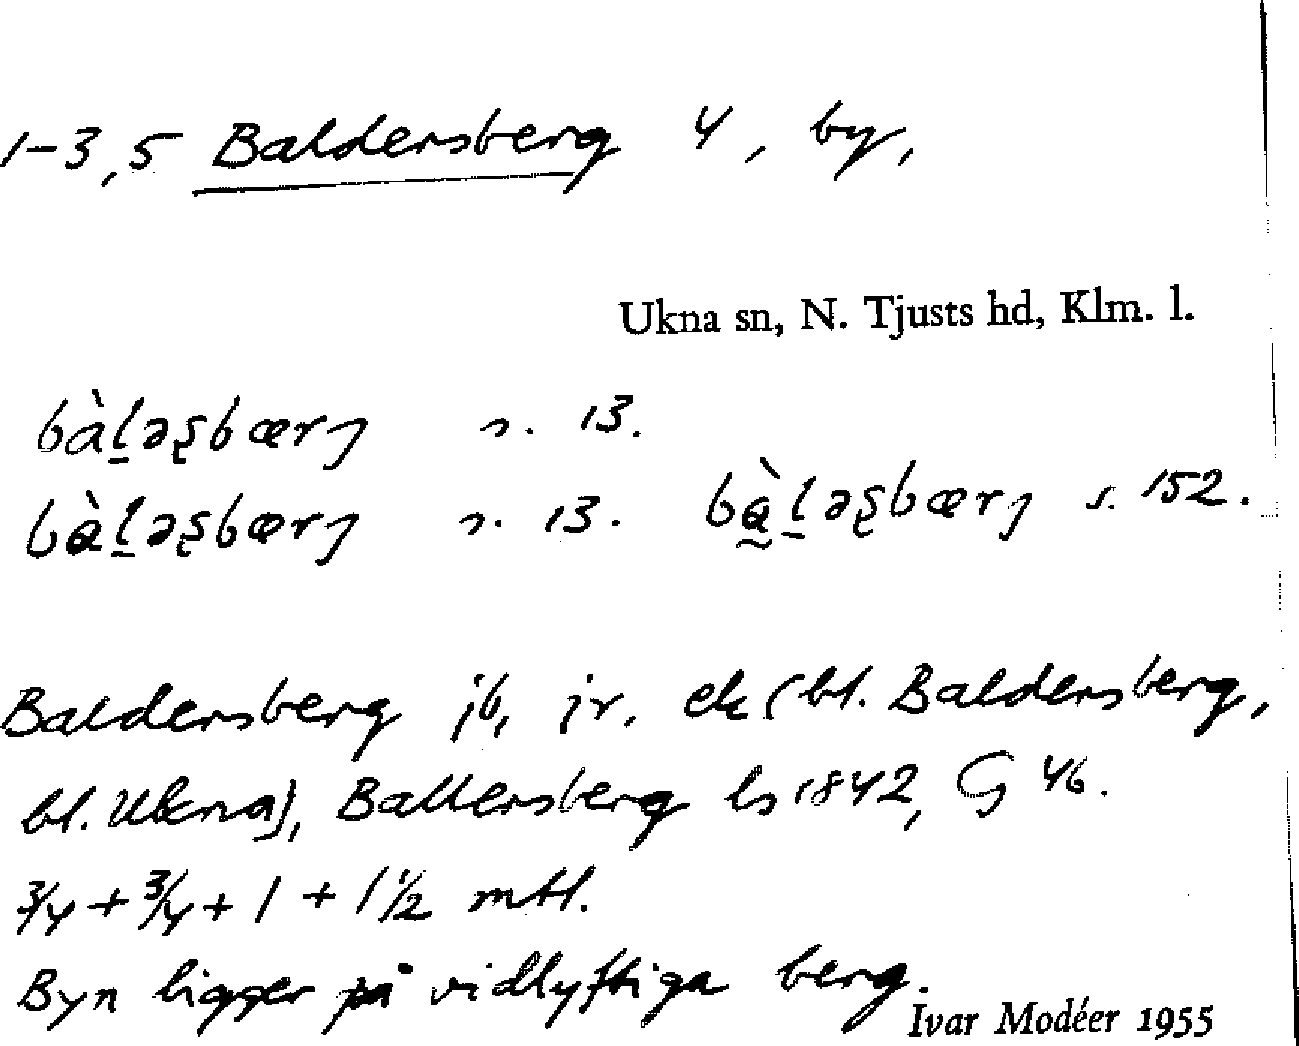 1-3,5 Baldersberg 4, by,
Ukna sn, N. Tjusts hd, Klm. l.
bàḻəʂbærj s. 13.
bàḻəʂbærj s. 13. bà̰ḻəʂbærj s. 152.
Baldersberg jb, jr, ek (bl. Baldersberg,
bl. Ukna), Ballersberg ls 1842, G 46.
3/4 + 3/4 + 1 + 1 1/2 mtl.
Byn ligger på vidlyftiga berg.
Ivar Modéer 1955